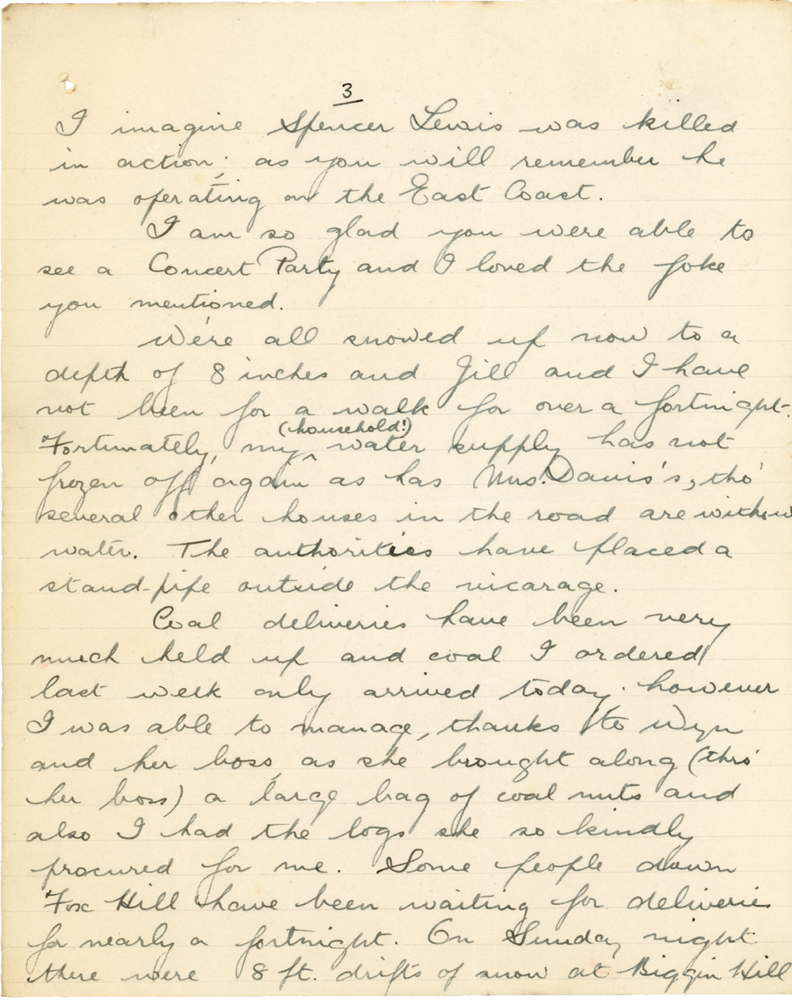 3
I imagine Spencer Lewis was killed
in action; as you will remember he
was operating on the East Coast.
I am so glad you were able to
see a Concert Party and I loved the joke
you mentioned.
We're all snowed up now to a
depth of 8 inches and Jill and I have
not been for a walk for over a fortnight.
(household!)
Fortunately, my ^ water supply has not
frozen off again as has Mrs. Davis's, tho'
several other houses in the road are without
water. The authorities have placed a
stand-pipe outside the vicarage.
Coal deliveries have been very
much held up and coal I ordered
last week only arrived today; however
I was able to manage, thanks to Wyn
and her boss, as she brought along (thro'
her boss) a large bag of coal nuts and
also I had the logs she so kindly
procured for me. Some people down
Fox Hill have been waiting for deliveries
for nearly a fortnight. On Sunday night
there were 8 ft. drifts of snow at Biggin Hill